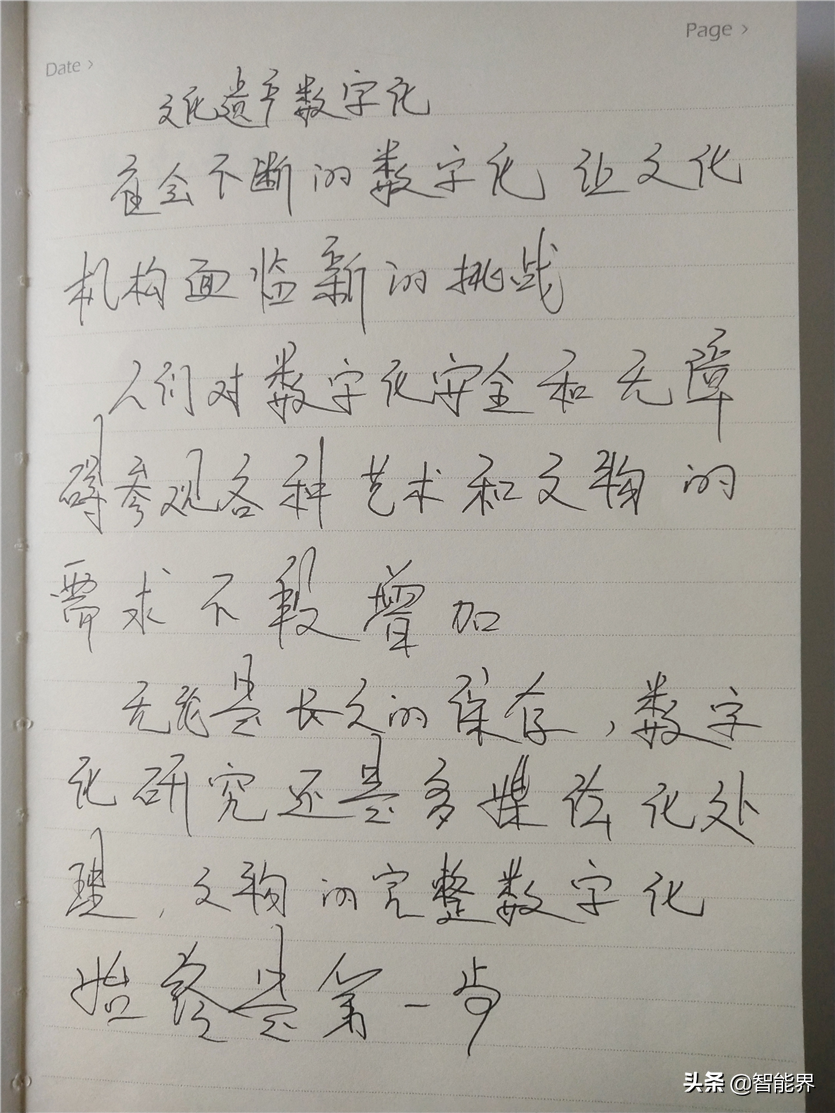 Page >
Date >
文化遗产数字化
社会不断的数字化 让文化
机构面临新的挑战
人们对数字化安全和无障
碍参观各种艺术和文物的
需求不段增加
无论是长久的保存，数字
化研究还是多媒体化处
理，文物的完整数字化
始终是第一步
头条 @智能界